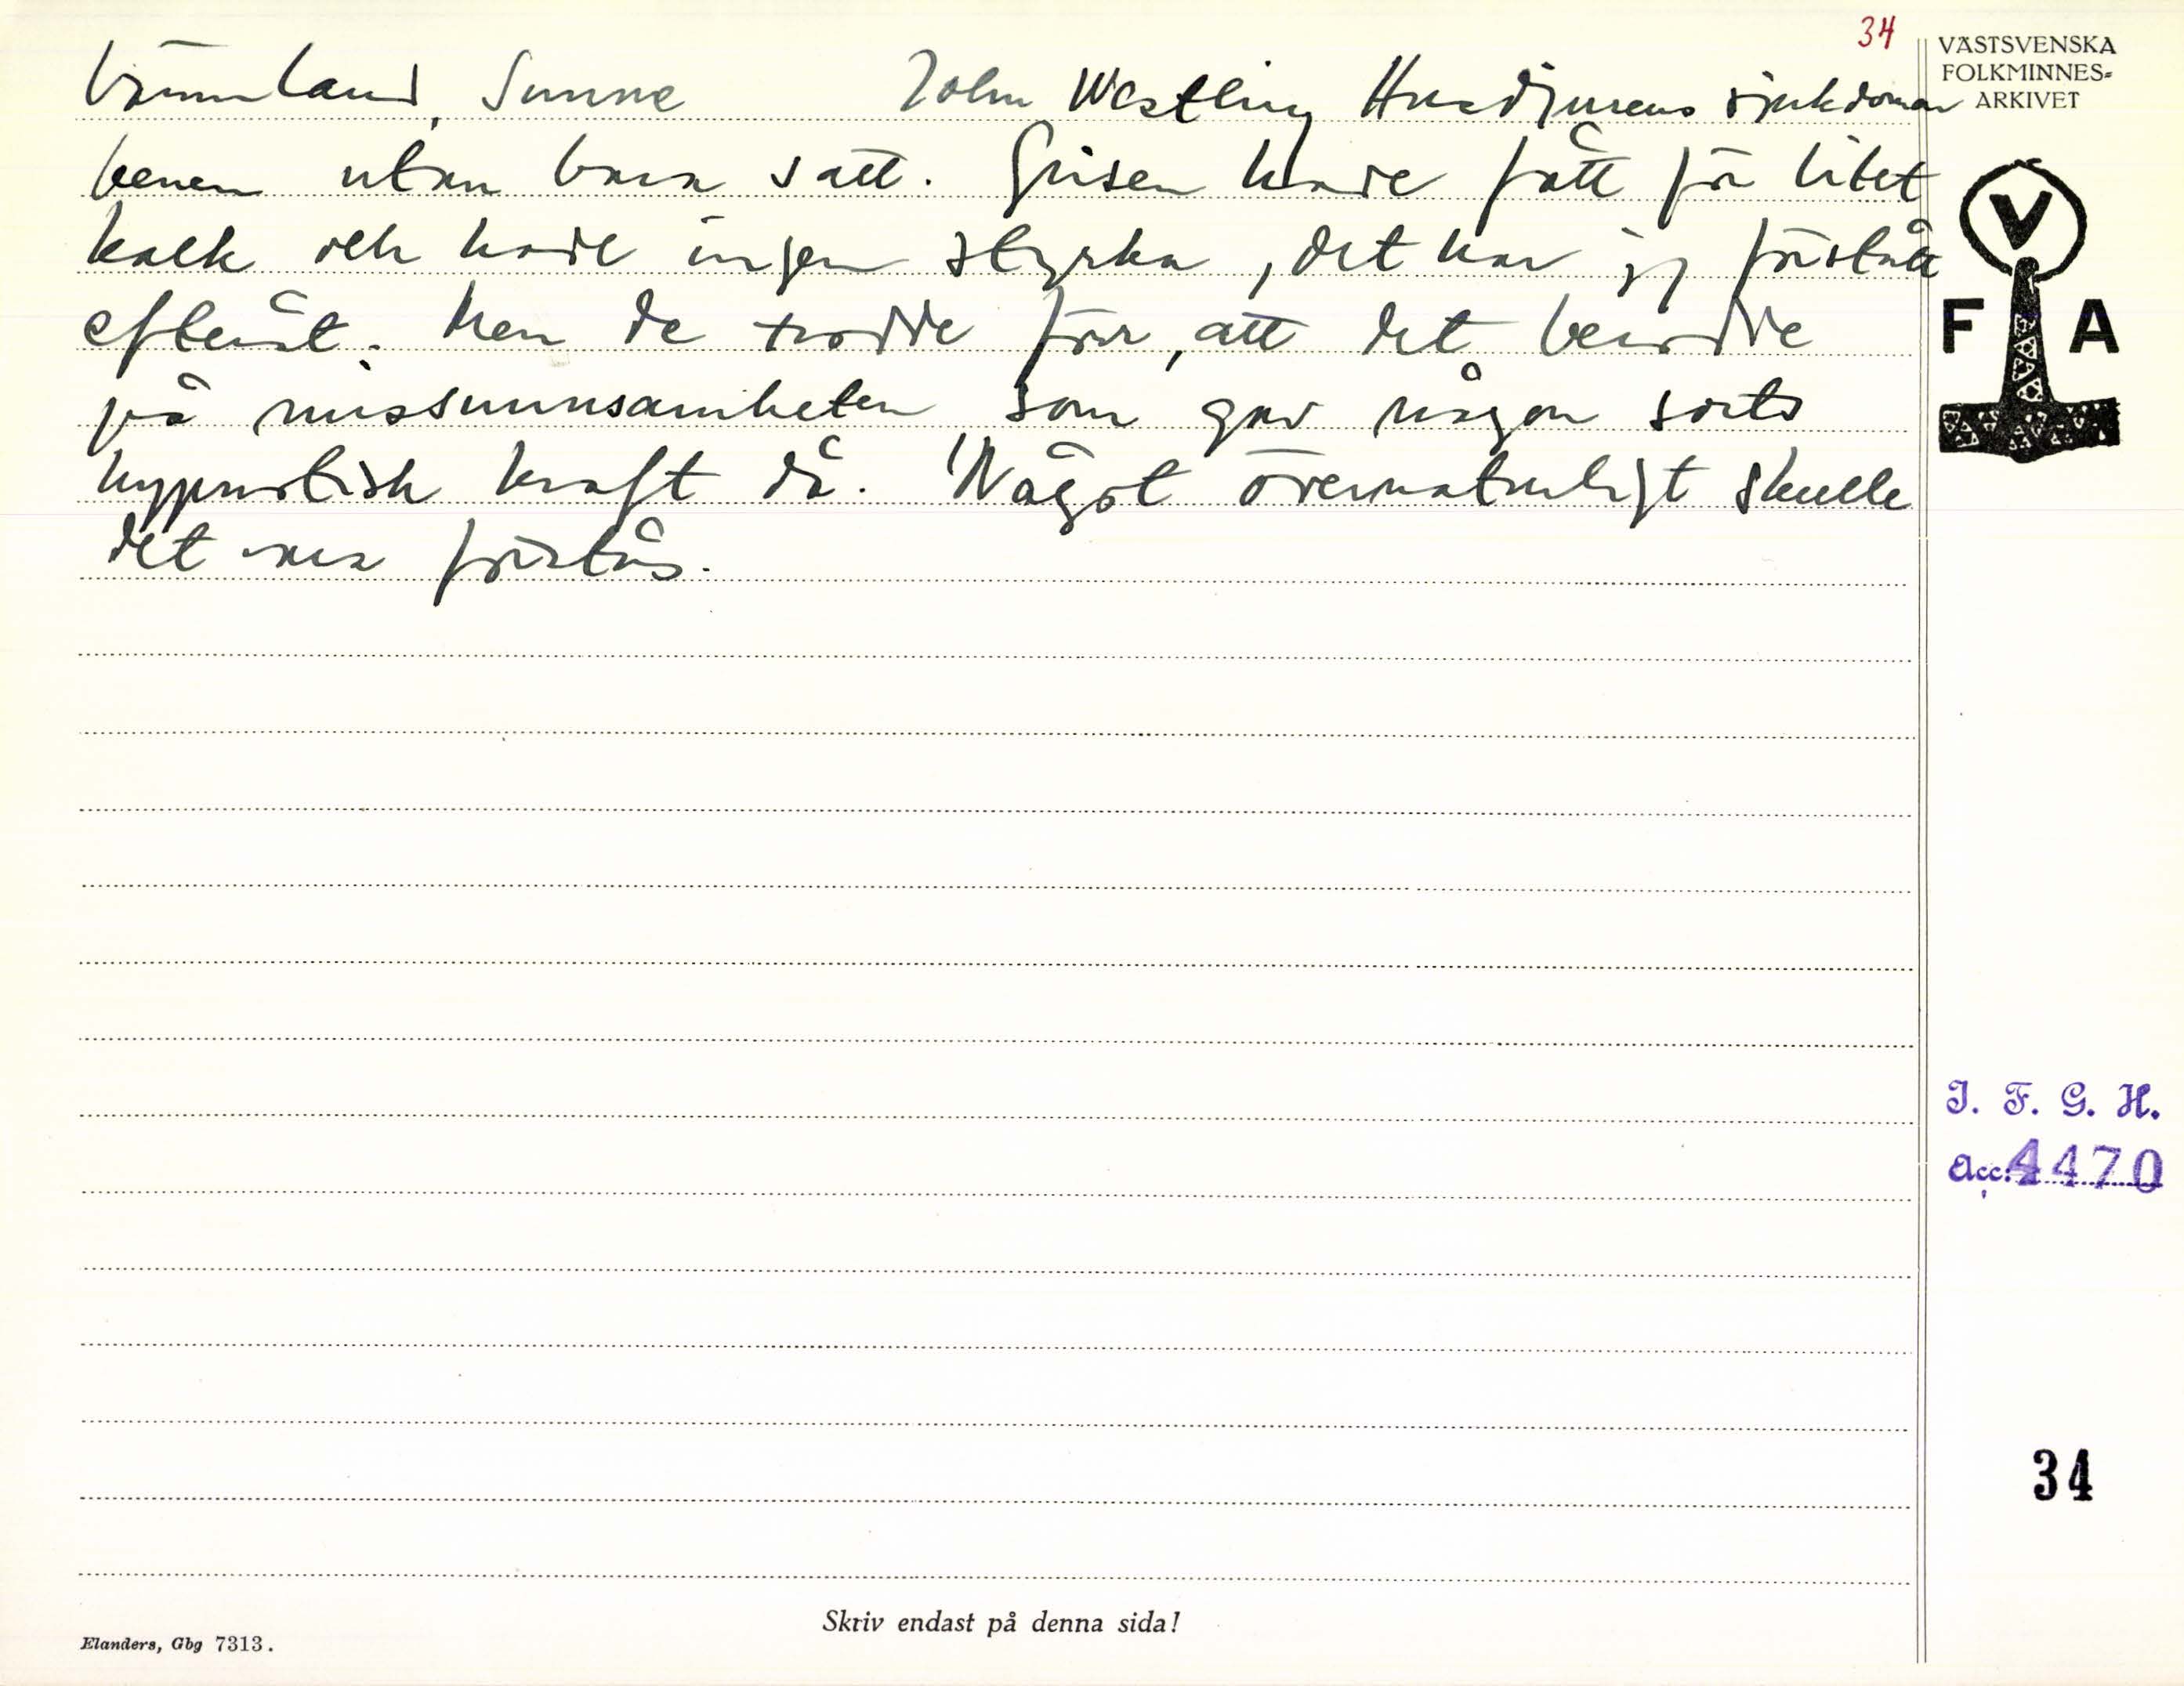 34
VÄSTSVENSKA
FOLKMINNES=
ARKIVET
Värmland, Sunne John Westling Husdjurens sjukdomar
benen utan bara satt. Grisen hade fått för litet
kalk och hade ingen styrka, det har jg förstått
efteråt. Men de trodde förr, att det berodde
på missunnsamheten som gav någon sorts
hypnotisk kraft då. Något övernaturligt skulle
det vara förstås.
V
F A
I. F. G. H.
Acc. 4470
34
Skriv endast på denna sida!
Elanders, Gbg 7313.